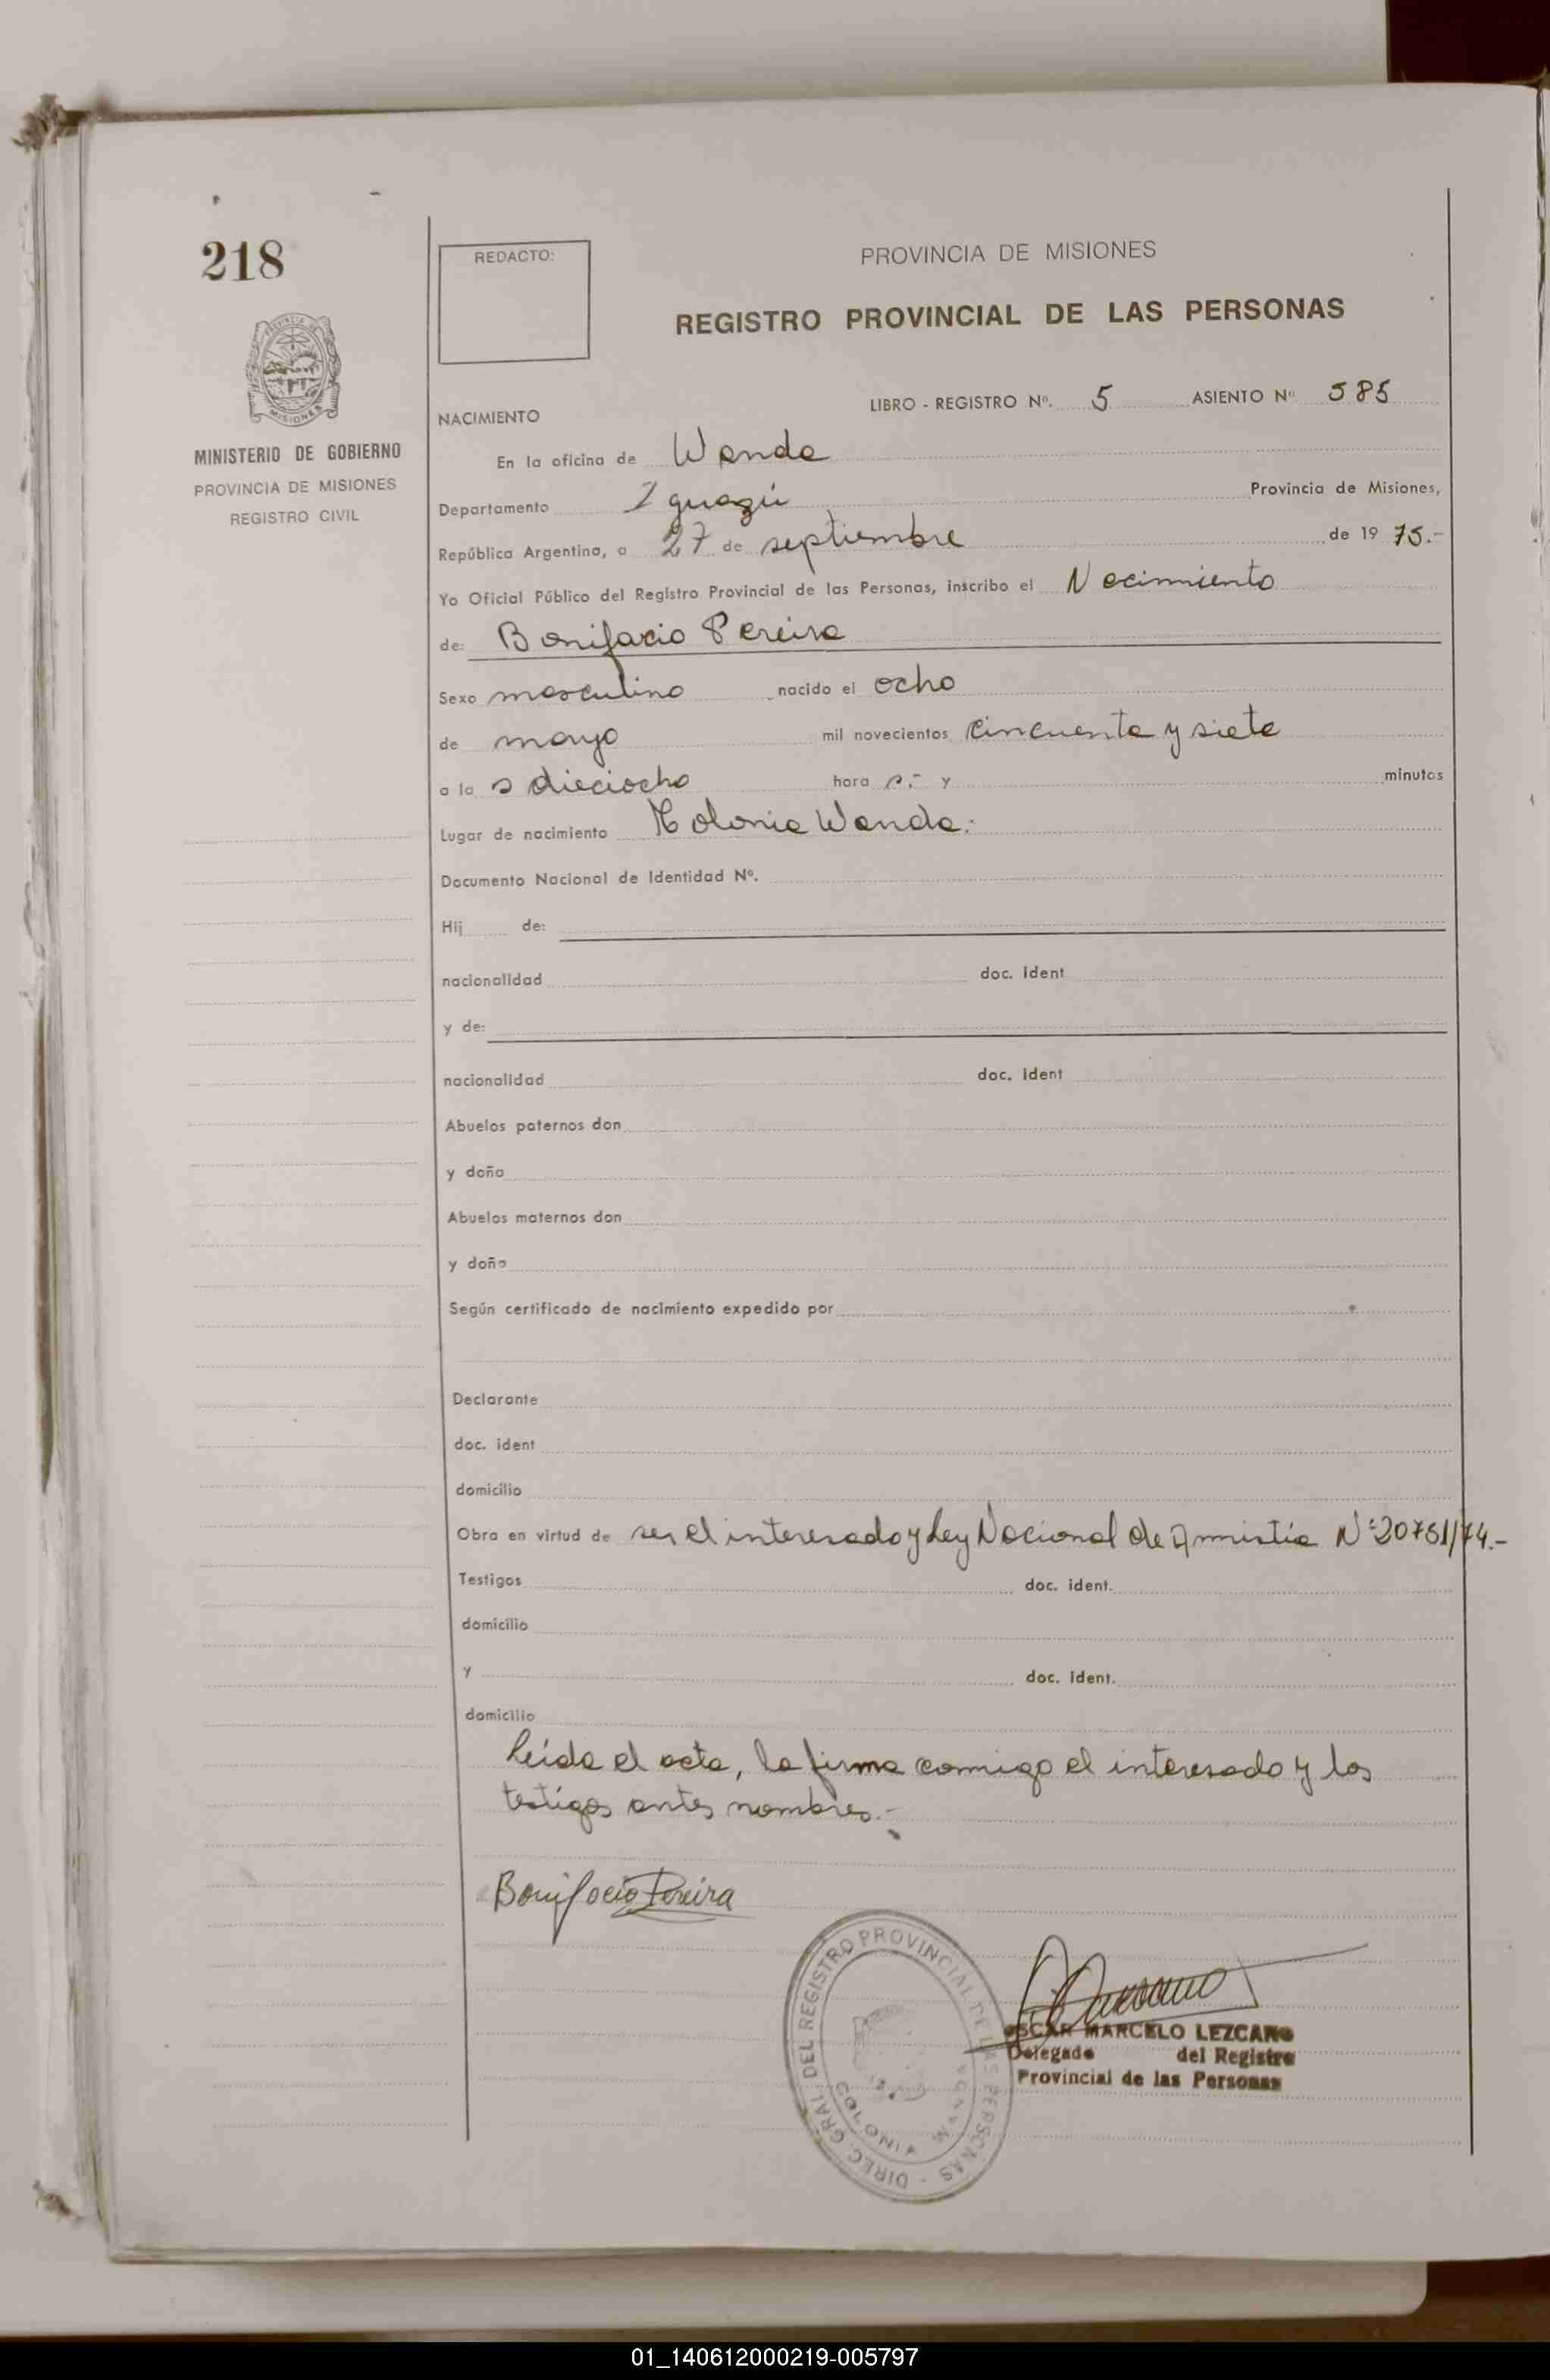 218
REDACTO:
PROVINCIA DE MISIONES
REGISTRO PROVINCIAL DE LAS PERSONAS
MISIONES
MINISTERIO DE GOBIERNO
PROVINCIA DE MISIONES
REGISTRO CIVIL
LIBRO - REGISTRO Nº. 5 ASIENTO Nº 585
NACIMIENTO
En la oficina de Wanda
Departamento Iguazú Provincia de Misiones,
República Argentina, a 27 de septiembre de 19 75.-
Yo Oficial Público del Registro Provincial de las Personas, inscribo el Nacimiento
de: Bonifacio Pereira
Sexo masculino nacido el ocho
de mayo mil novecientos cincuenta y siete
a la s dieciocho hora s.- y minutos
Lugar de nacimiento Colonia Wanda.-
Documento Nacional de Identidad Nº.
Hij de:
nacionalidad doc. ident
y de:
nacionalidad doc. ident
Abuelos paternos don
y doña
Abuelos maternos don
y doña
Según certificado de nacimiento expedido por
Declarante
doc. ident
domicilio
Obra en virtud de ser el interesado y Ley Nacional de Amnistía Nº 20751/74.-
Testigos doc. ident.
domicilio
y doc. ident.
domicilio
Leída el acta, la firma comigo el interesado y los
testigos antes nombres.-
Bonifacio Pereira
DIREC. GRAL. DEL REGISTRO PROVINCIAL DE LAS PERSONAS
COLONIA WANDA
OSCAR MARCELO LEZCANO
Delegado del Registro
Provincial de las Personas
01_140612000219-005797